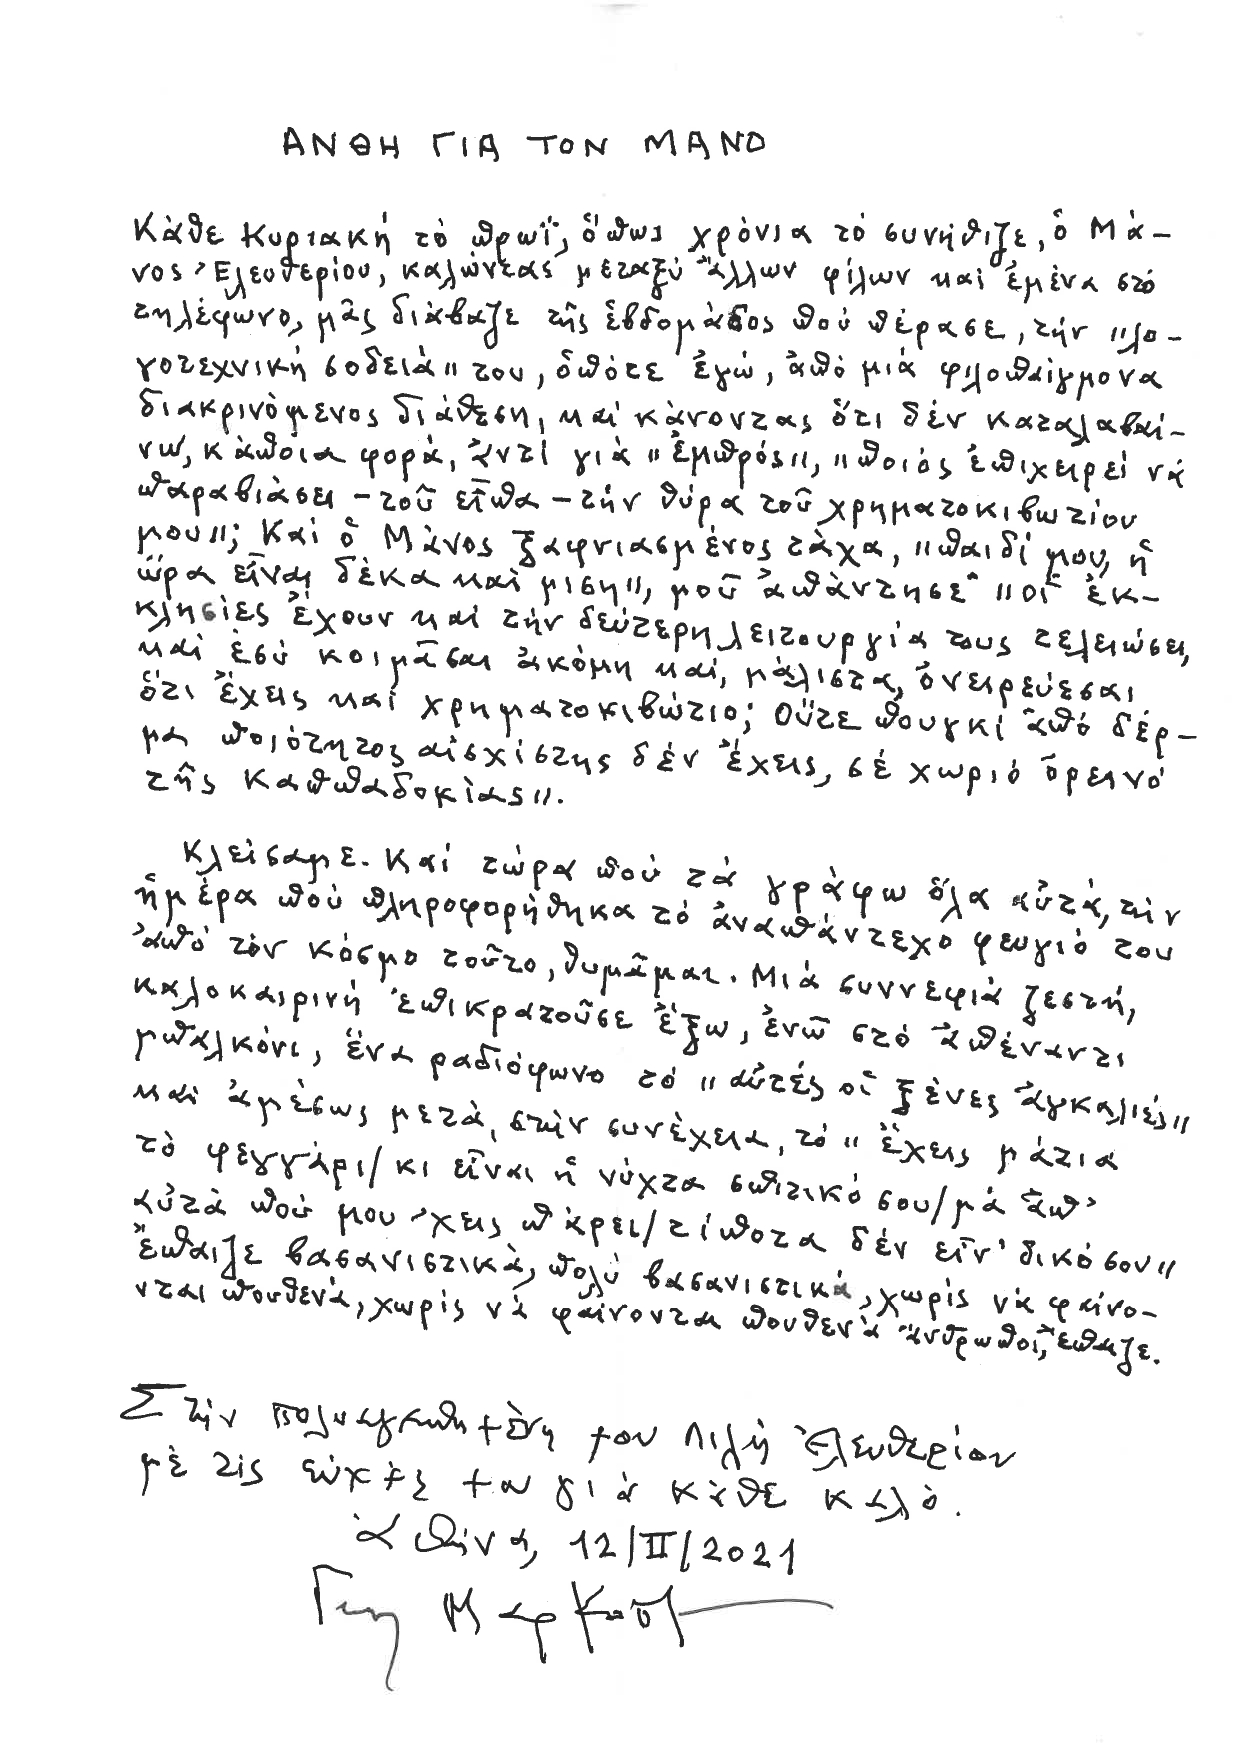 ΑΝΘΗ ΓΙΑ ΤΟΝ ΜΑΝΟ
Κάθε Κυριακή τό πρωΐ, ὅπως χρόνια τό συνήθιζε, ὁ Μά-
νος Ἐλευθερίου, καλώντας μεταξύ ἄλλων φίλων καί ἐμένα στό
τηλέφωνο, μᾶς διάβαζε τῆς ἑβδομάδος πού πέρασε, τήν "λο-
γοτεχνική σοδειά" του, ὁπότε ἐγώ, ἀπό μιά φιλοπαίγμονα
διακρινόμενος διάθεση, καί κάνοντας ὅτι δέν καταλαβαί-
νω, κάποια φορά, ἀντί γιά "ἐμπρός", "ποιός ἐπιχειρεί νά
παραβιάσει - τοῦ εἶπα - τήν θύρα τοῦ χρηματοκιβωτίου
μου"; Καί ὁ Μάνος ξαφνιασμένος τάχα, "παιδί μου, ἡ
ὥρα εἶναι δέκα καί μιση", μοῦ ἀπάντησε· "οἱ ἐκ-
κλησίες ἔχουν καί τήν δεύτερη λειτουργία τους τελειώσει,
καί ἐσύ κοιμᾶσαι ἀκόμη καί, μάλιστα, ὀνειρεύεσαι
ὅτι ἔχεις καί χρηματοκιβώτιο; Οὔτε πουγκί ἀπό δέρ-
μα ποιότητος αἰσχίστης δέν ἔχεις, σέ χωριό ὀρεινό
τῆς Καππαδοκίας".
Κλείσαμε. Καί τώρα πού τά γράφω ὅλα αὐτά, τήν
ἡμέρα πού πληροφορήθηκα τό ἀναπάντεχο φευγιό του
ἀπό τόν κόσμο τοῦτο, θυμᾶμαι. Μιά συννεφιά ζεστή,
καλοκαιρινή ἐπικρατοῦσε ἔξω, ἐνῶ στό ἀπέναντι
μπαλκόνι, ἕνα ραδιόφωνο τό "αὐτές οἱ ξένες ἀγκαλιές"
καί ἀμέσως μετά, στήν συνέχεια, τό "ἔχεις μάτια
τό φεγγάρι/ κι εἶναι ἡ νύχτα σπιτικό σου/ μά ἀπ'
αὐτά πού μου 'χεις πάρει/ τίποτα δέν εἶν' δικό σου"
Ἔπαιζε βασανιστικά, πολύ βασανιστικά, χωρίς νά φαίνο-
νται πουθενά, χωρίς νά φαίνονται πουθενά ἄνθρωποι, ἔπαιζε.
Στήν πολυαγαπημένη μου Λιλή Ἐλευθερίου
μέ τίς εὐχές μου γιά κάθε καλό.
Ἀθήνα, 12/II/2021